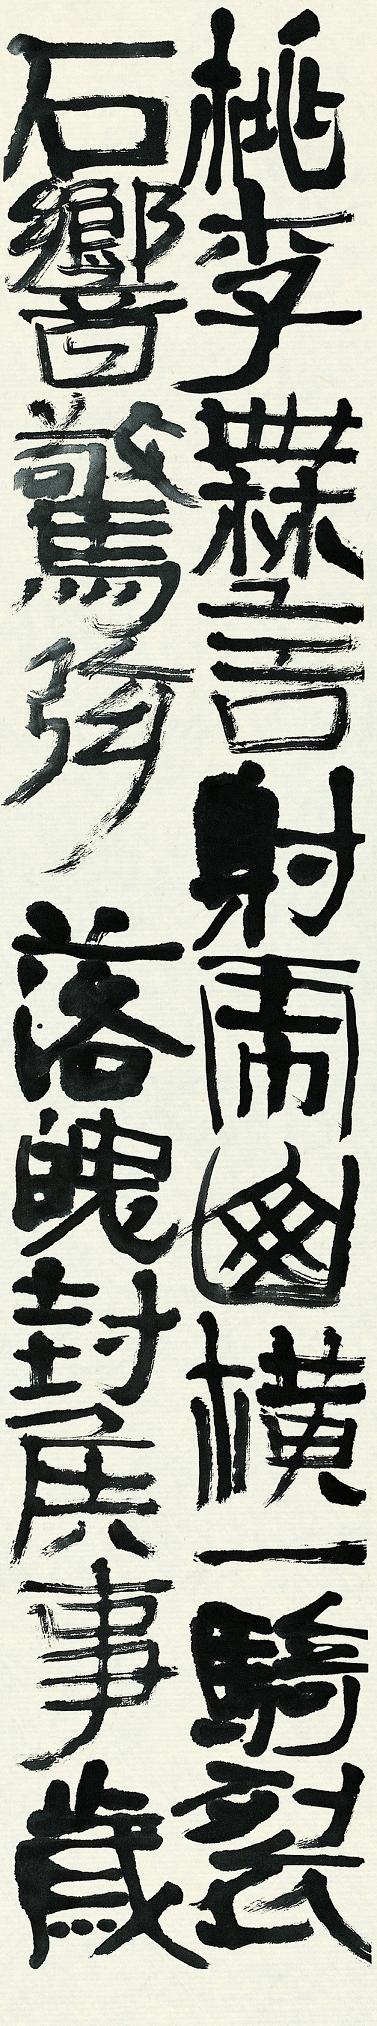 桃李無言射虎山橫一騎裂
石響驚弦落魄封侯事歲